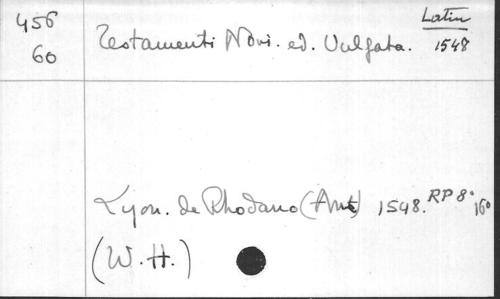 456
60
Testamenti Novi. ed. Vulgata.
Latin
1548
Lyon. de Rhodano (Ant) 1548. RP 8° 16°
(W. H.)